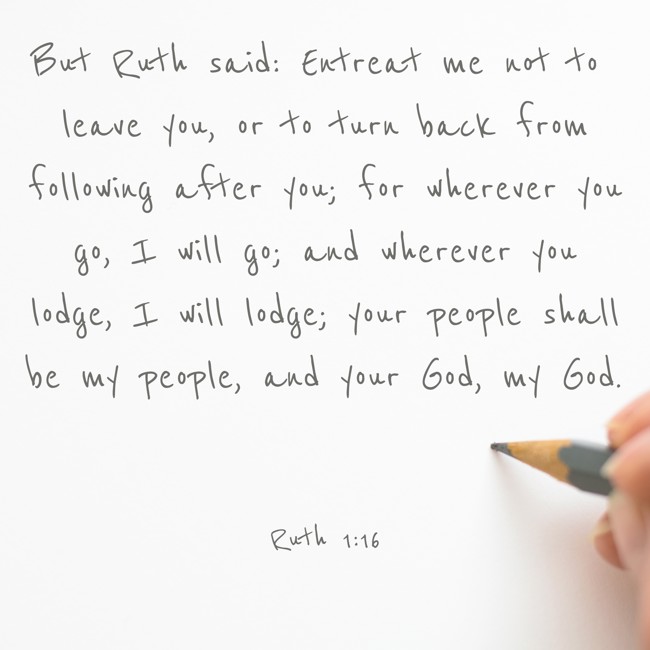 But Ruth said: Entreat me not to
leave you, or to turn back from
following after you; for wherever you
go, I will go; and wherever you
lodge, I will lodge; your people shall
be my people, and your God, my God.
Ruth 1:16